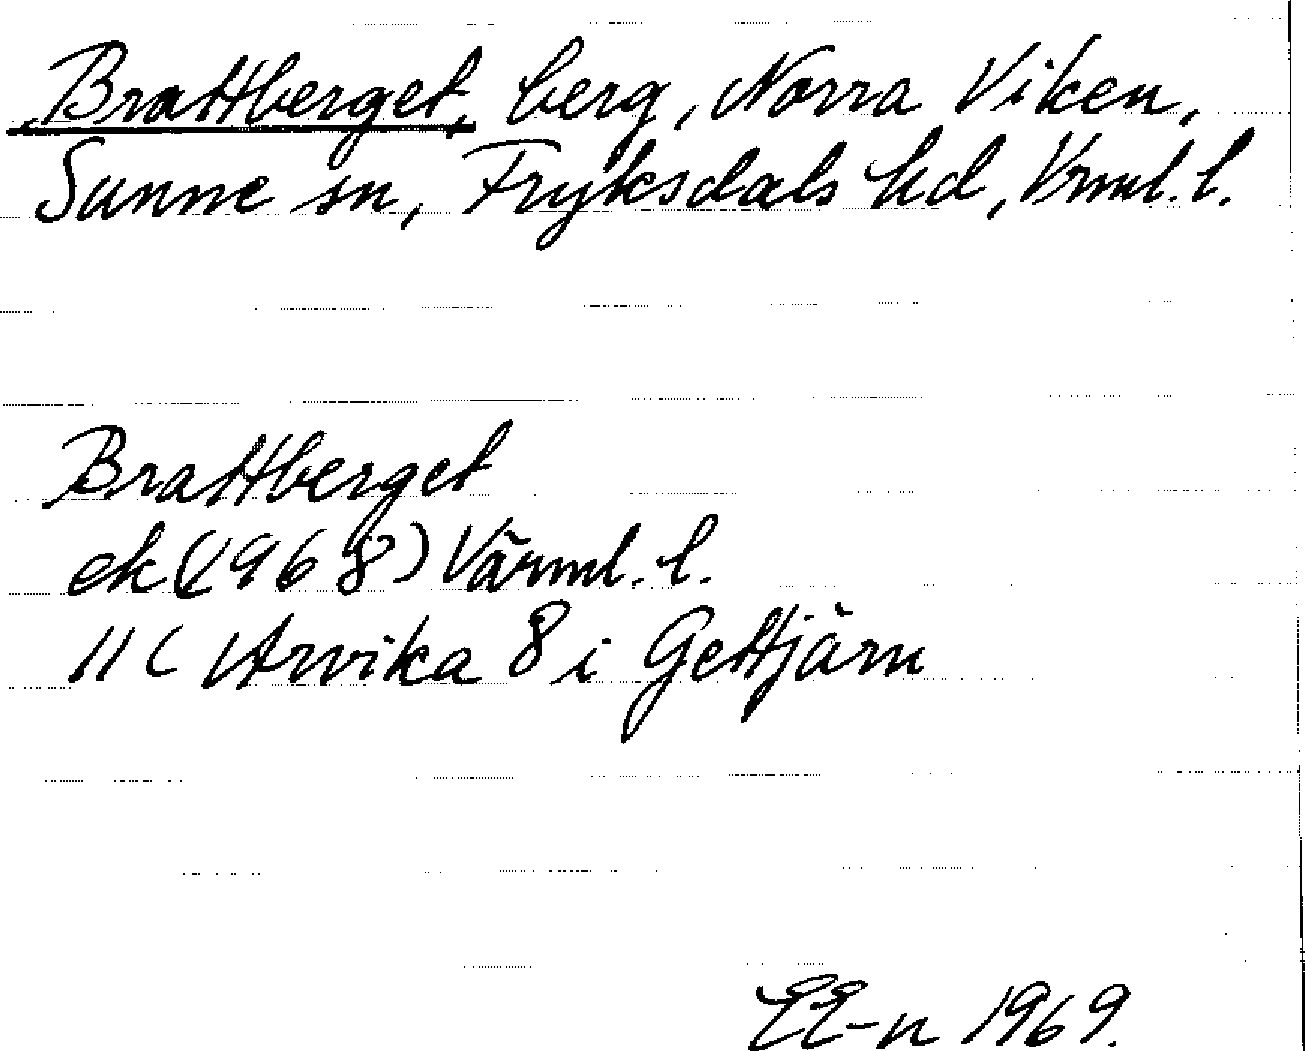 Brattberget, berg, Norra Viken,
Sunne sn, Fryksdals hd, Vrml. l.
Brattberget
ek (1968) Värml. l.
11 C Arvika 8 i Gettjärn
EE-n 1969.